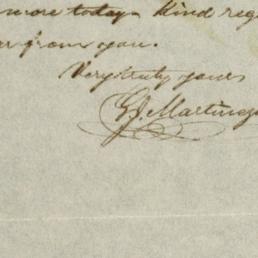 more today. Kind reg
from you.
Very truly yours
G. J. Martinez